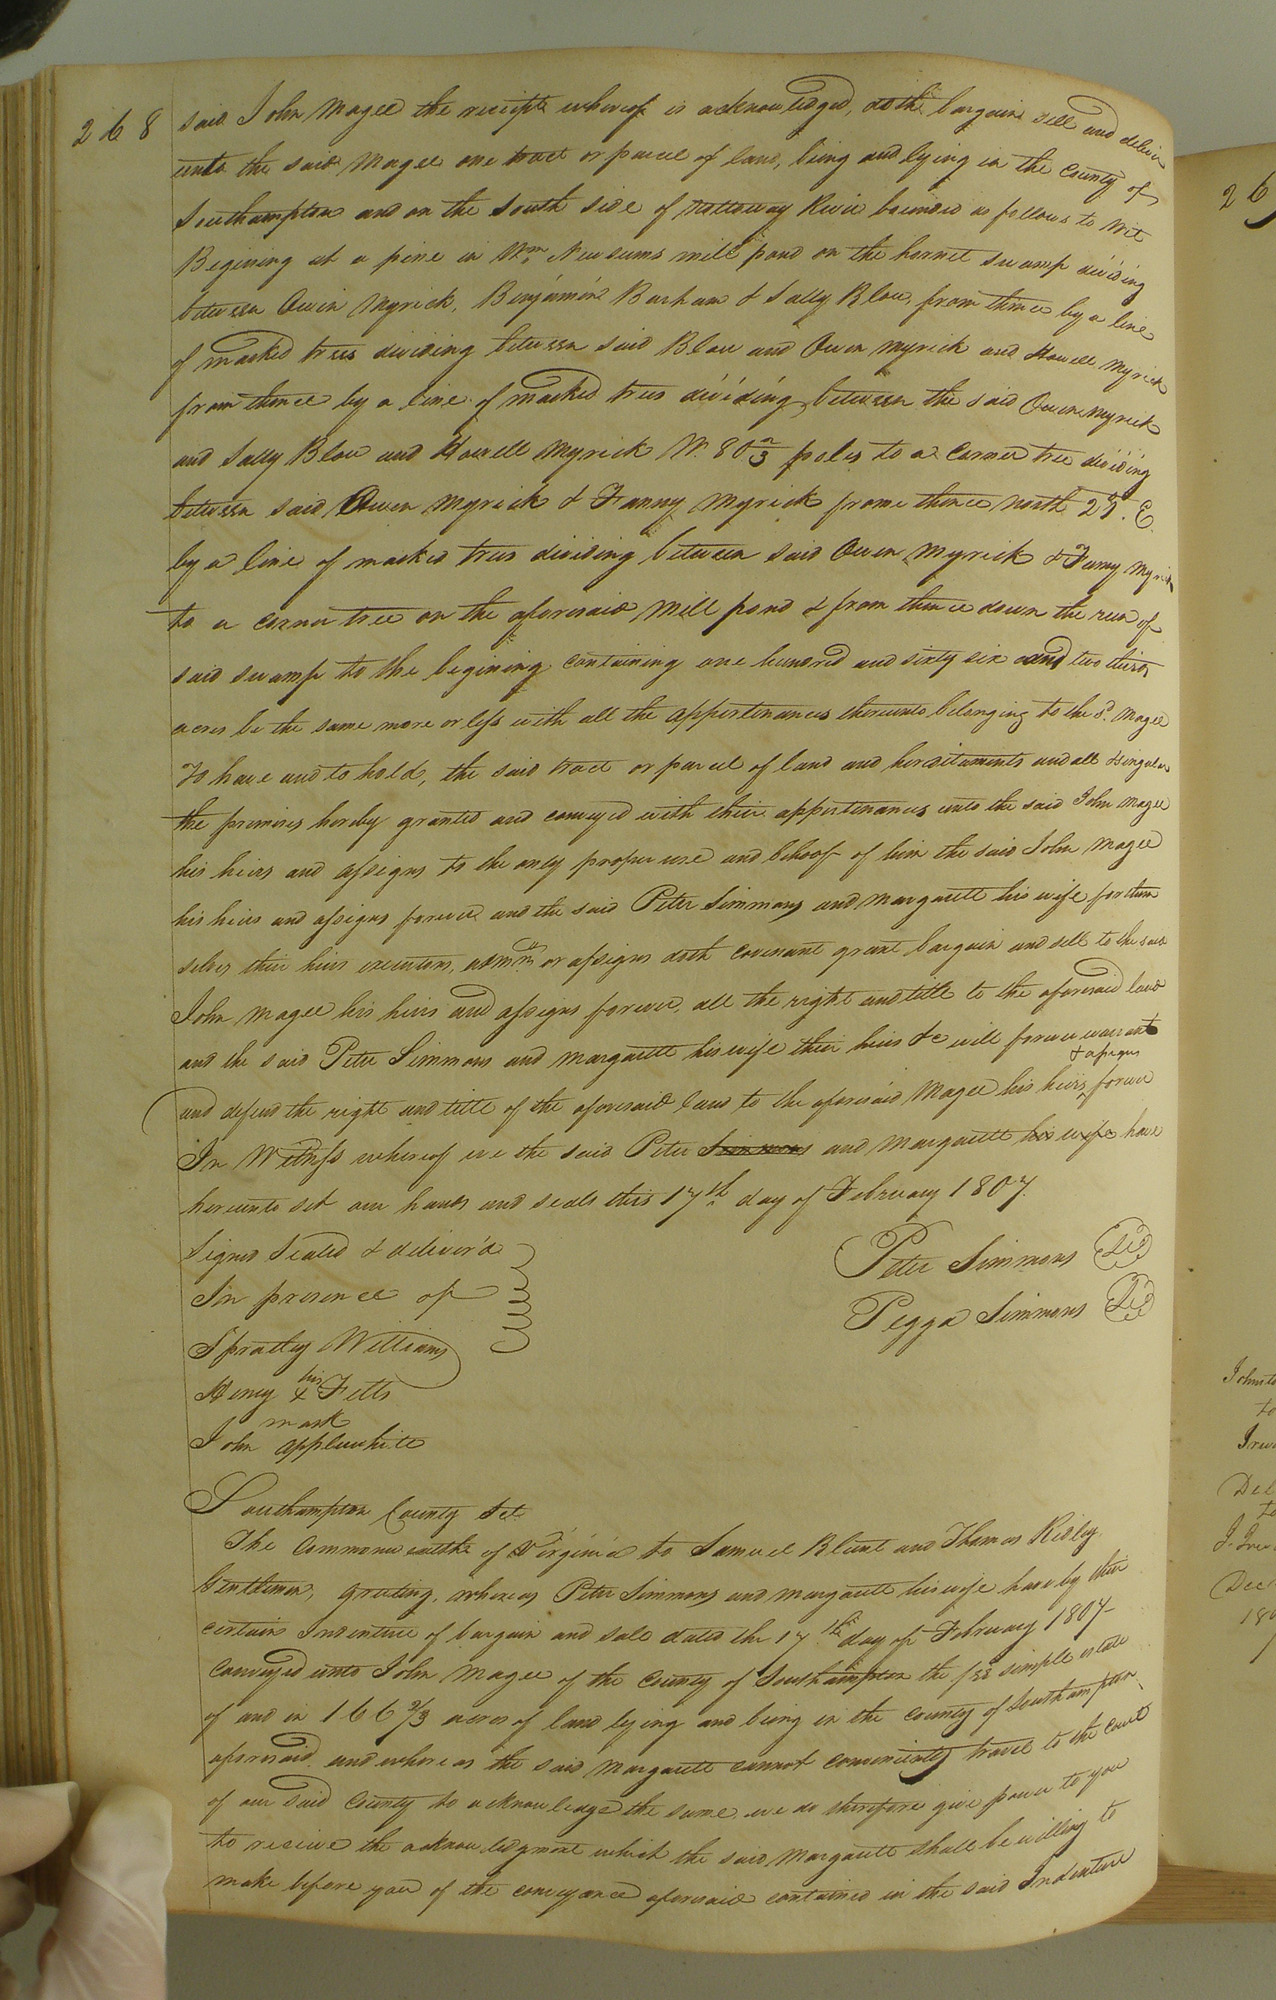 268
said John Magee the receipt whereof is acknowledged, doth bargain sell and deliver
unto the said Magee one tract or parcel of land, being and lying in the County of
Southampton and on the South side of Nottoway River bounded as follows to wit
Begining at a pine in Wm. Newsums mill pond on the hornet swamp dividing
between Owin Myrick, Benjamin Barham & Sally Blow, from thence by a line
of marked trees dividing between said Blow and Owen Myrick and Howell Myrick
from thence by a line of marked trees dividing between the said Owen Myrick
and Sally Blow and Howell Myrick W 80 2/3 poles to a corner tree dividing
between said Owen Myrick & Fanny Myrick from thence North 25. E.
by a line of marked trees dividing between said Owen Myrick & Fanny Myrick
to a corner tree on the aforesaid Mill pond & from thence down the run of
said swamp to the begining containing one hundred and sixty six and two thirds
acres be the same more or less with all the appertinances thereunto belonging to the sd. Magee
To have and to hold, the said tract or parcel of land and hereditaments and all & singular
the premises hereby granted and conveyed with their appertinances unto the said John Magee
his heirs and assigns to the only proper use and behoof of him the said John Magee
his heirs and assigns forever and the said Peter Simmons and Margarett his wife for them
selves their heirs executors, admrs. or assigns doth covenant grant bargain and sell to the said
John Magee his heirs and assigns forever, all the right and title to the aforesaid land
and the said Peter Simmons and Margarett his wife their heirs &c will forever warrant
& assigns
and defend the right and title of the aforesaid land to the aforesaid Magee his heirs forever
In Witness whereof we the said Peter Simmons and Margarett his wife have
hereunto set our hands and seals this 17th. day of February 1807.
Signed Sealed & deliver'd
In presence of
Peter Simmons
Pegga Simmons
Spratley Williams
Henry his x Fetts
mark
John Applewhite
Southampton County Sct.
The Commonwealth of Virginia to Samuel Blunt and Thomas Ridley
Gentlemen, greeting, whereas Peter Simmons and Margarett his wife have by their
certain Indenture of bargain and sale dated the 17th. day of February 1807
conveyed unto John Magee of the county of Southampton the fee simple estate
of and in 166 2/3 acres of land lying and being in the county of Southampton
aforesaid and whereas the said Margarett cannot conveniently travel to the court
of our said county to acknowledge the same, we do therefore give power to you
to receive the acknowledgment which the said Margarett shall be willing to
make before you of the conveyance aforesaid contained in the said Indenture
26
Johnst
to
Del
to
Dec